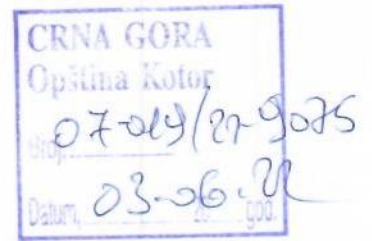 CRNA GORA
Opština Kotor
Broj, 07-019/21-9075
Datum, 03-06.22 god.